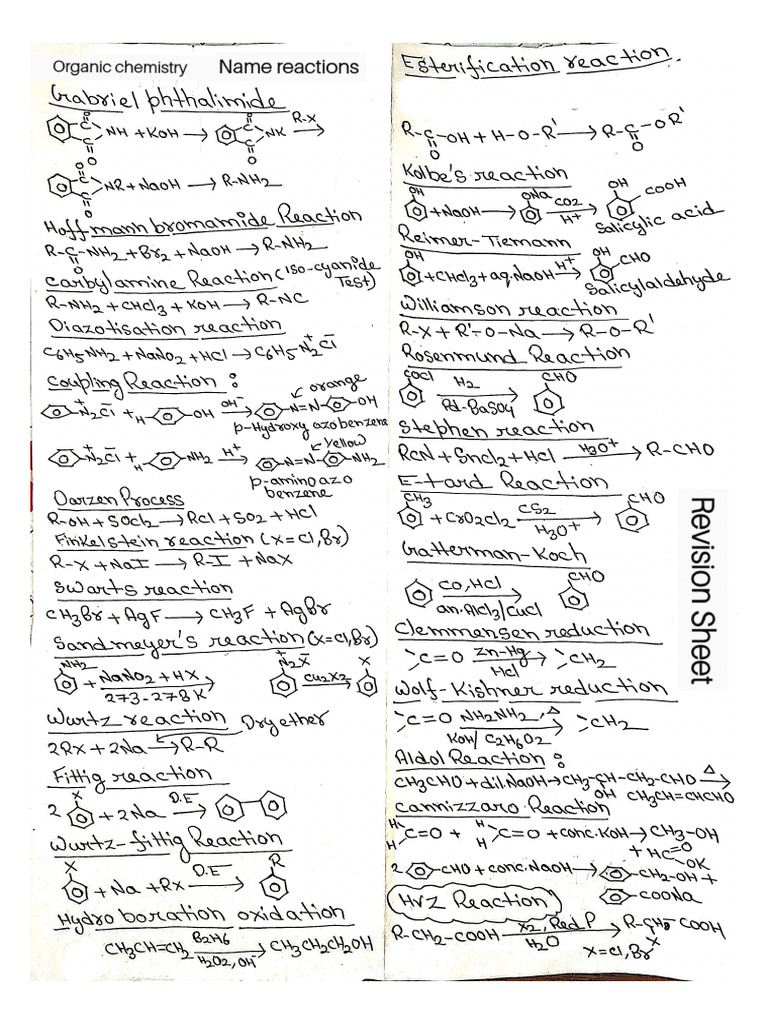 Organic chemistry Name reactions
Gabriel phthalimide
NH + KOH → NK R-X →
NR + NaOH → R-NH2
Hoffmann bromamide Reaction
R-C-NH2 + Br2 + NaOH → R-NH2
O
Carbylamine Reaction (Iso-cyanide Test)
R-NH2 + CHCl3 + KOH → R-NC
Diazotisation reaction
C6H5NH2 + NaNO2 + HCl → C6H5-N2Cl
Coupling Reaction :
orange
N2Cl + H OH OH⁻ → N=N OH
p-Hydroxy azobenzene
Yellow
N2Cl + H NH2 H⁺ → N=N NH2
p-aminoazo
benzene
Darzen Process
R-OH + SOCl2 → RCl + SO2 + HCl
Finkelstein reaction (X=Cl, Br)
R-X + NaI → R-I + NaX
Swarts reaction
CH3Br + AgF → CH3F + AgBr
Sandmeyer's reaction (X=Cl, Br)
NH2 + NaNO2 + HX → N2X Cu2X2 → X
273-278K
Wurtz reaction Dry ether
2RX + 2Na → R-R
Fittig reaction
2 X + 2Na D.E →
Wurtz-fittig Reaction
X + Na + RX D.E → R
Hydroboration oxidation
CH3CH=CH2 B2H6 → CH3CH2CH2OH
H2O2, OH⁻
Esterification reaction.
R-C-OH + H-O-R' → R-C-OR'
O O
Kolbe's reaction
OH + NaOH → ONa CO2 H⁺ → OH COOH
Salicylic acid
Reimer-Tiemann
OH + CHCl3 + aq.NaOH H⁺ → OH CHO
Salicylaldehyde
Williamson reaction
R-X + R'-O-Na → R-O-R'
Rosenmund Reaction
COCl H2 → CHO
Pd-BaSO4
Stephen reaction
RCN + SnCl2 + HCl H3O⁺ → R-CHO
E-tard Reaction
CH3 + CrO2Cl2 CS2 → CHO
H3O⁺
Gatterman-Koch
CO, HCl → CHO
an.AlCl3/CuCl
Clemmensen reduction
C=O Zn-Hg → CH2
HCl
Wolf-Kishner reduction
C=O NH2NH2, Δ → CH2
KOH/C2H6O2
Aldol Reaction :
CH3CHO + dil.NaOH → CH3-CH-CH2-CHO Δ →
OH CH3CH=CHCHO
Cannizzaro Reaction
H H C=O + H H C=O + conc.KOH → CH3-OH
+ HC=O
OK
2 CHO + conc.NaOH → CH2-OH +
COONa
HVZ Reaction
R-CH2-COOH X2, Red P → R-CH-COOH
H2O X
X=Cl, Br
Revision Sheet